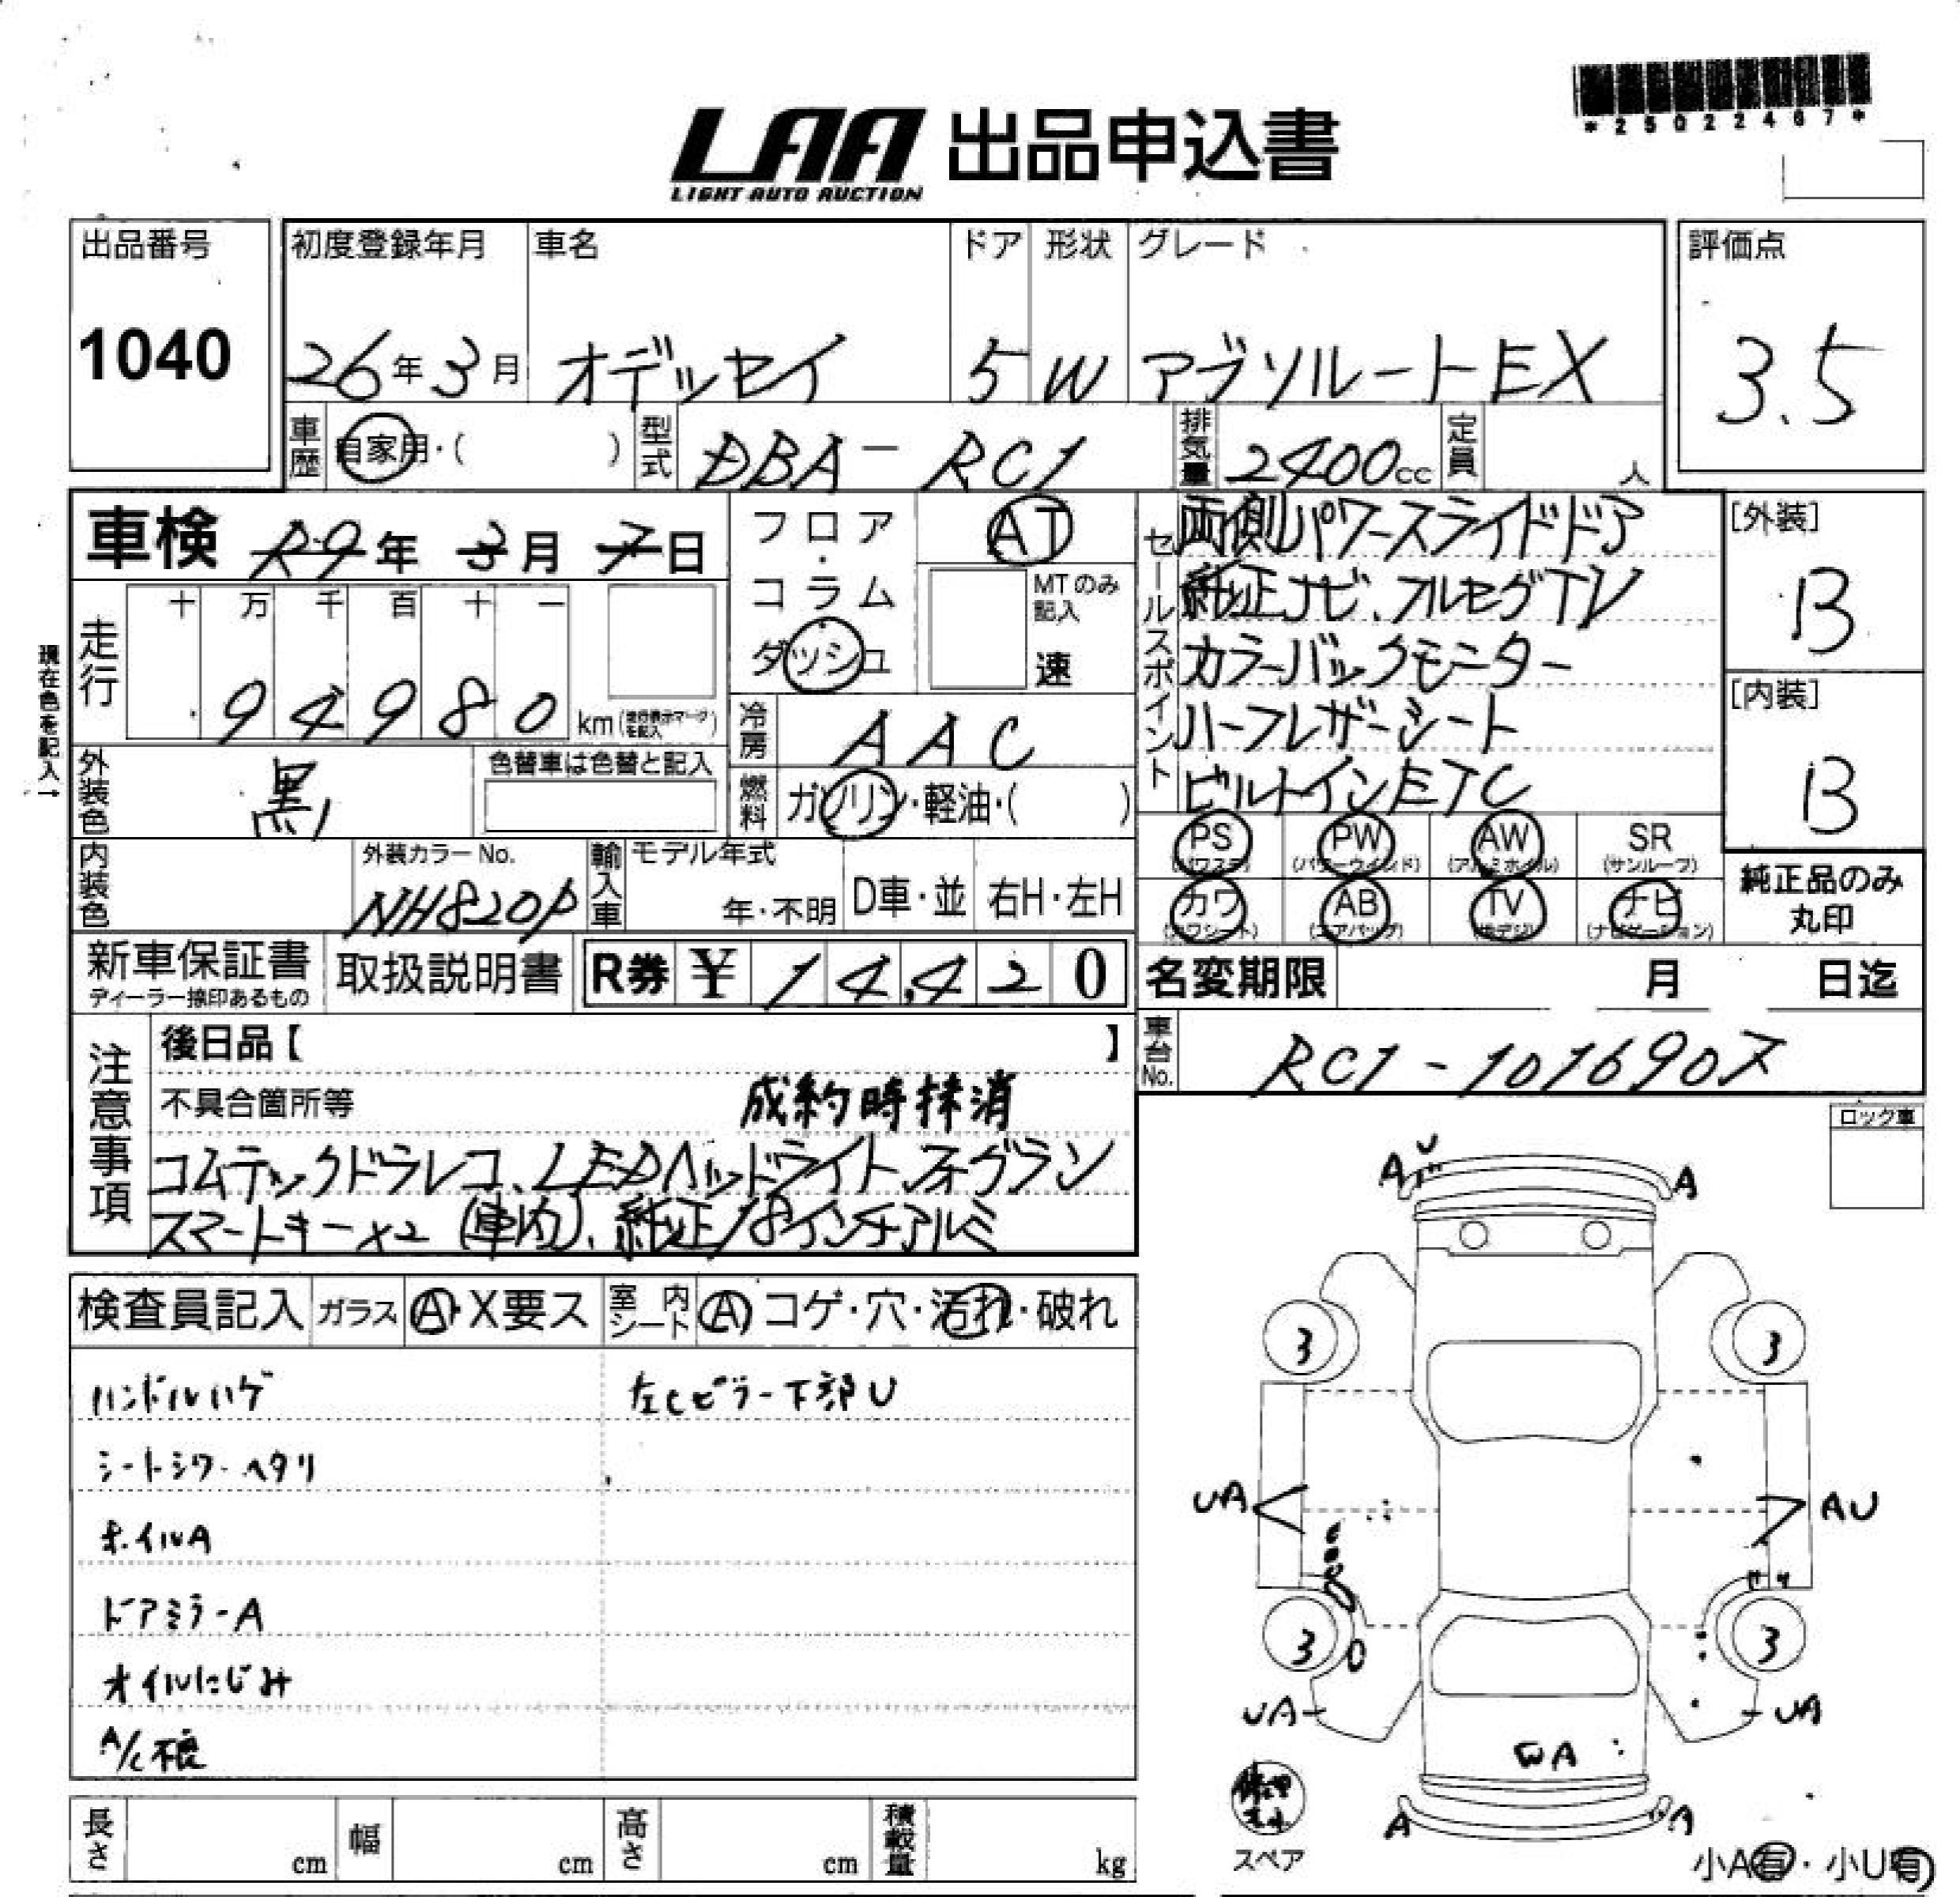 *25022467*
LAA 出品申込書
LIGHT AUTO AUCTION
出品番号
1040
初度登録年月
26年3月
車名
オデッセイ
ドア
5
形状
W
グレード
アブソルートEX
評価点
3.5
車歴
自家用・( )
型式
DBA-RC1
排気量
2400cc
定員
人
車検 R9年3月7日
フロア・コラム・ダッシュ
AT
MTのみ記入
速
セールスポイント
両側パワースライドドア
純正ナビ、フルセグTV
カラーバックモニター
ハーフレザーシート
ビルトインETC
[外装]
B
[内装]
B
現在色を記入→
走行
十 万 千 百 十 一
94980 km
冷房
AAC
外装色
黒
色替車は色替と記入
燃料
ガソリン・軽油・( )
内装色
外装カラーNo.
NH820P
輸入車
モデル年式
年・不明
D車・並
右H・左H
PS
(パワステ)
PW
(パワーウインド)
AW
(アルミホイル)
SR
(サンルーフ)
カワ
(カワシート)
AB
(エアバッグ)
TV
(地デジ)
ナビ
(ナビゲーション)
純正品のみ
丸印
新車保証書
ディーラー捺印あるもの
取扱説明書
R券 ¥14,420
名変期限 月 日迄
車台No.
RC1-1016907
注意事項
後日品【 】
不具合箇所等
成約時抹消
コムテックドラレコ、LEDヘッドライト、フォグラン
スマートキーx2 (車内)、純正18インチアルミ
ロック車
検査員記入
ガラス
A・X要ス
室内シート
A コゲ・穴・汚れ・破れ
ハンドルハゲ
左Cピラー下部U
シートシワ・ヘタリ
ホイルA
ドアミラーA
オイルにじみ
A/C不良
U
A
A
3
3
UA
AU
3
3
UA
UA
WA
A
A
スペア
小A有・小U有
長さ cm
幅 cm
高さ cm
積載量 kg